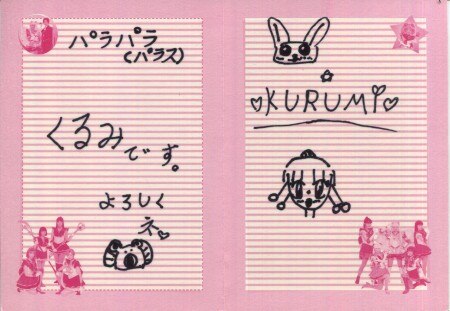 パラパラ
(パラス)
くるみです。
よろしく
ネ
KURUMI